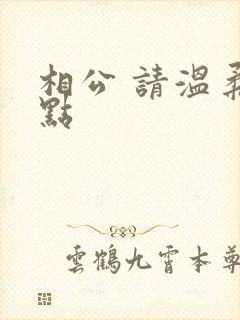 相公 請溫柔
點
雲鶴九霄本尊